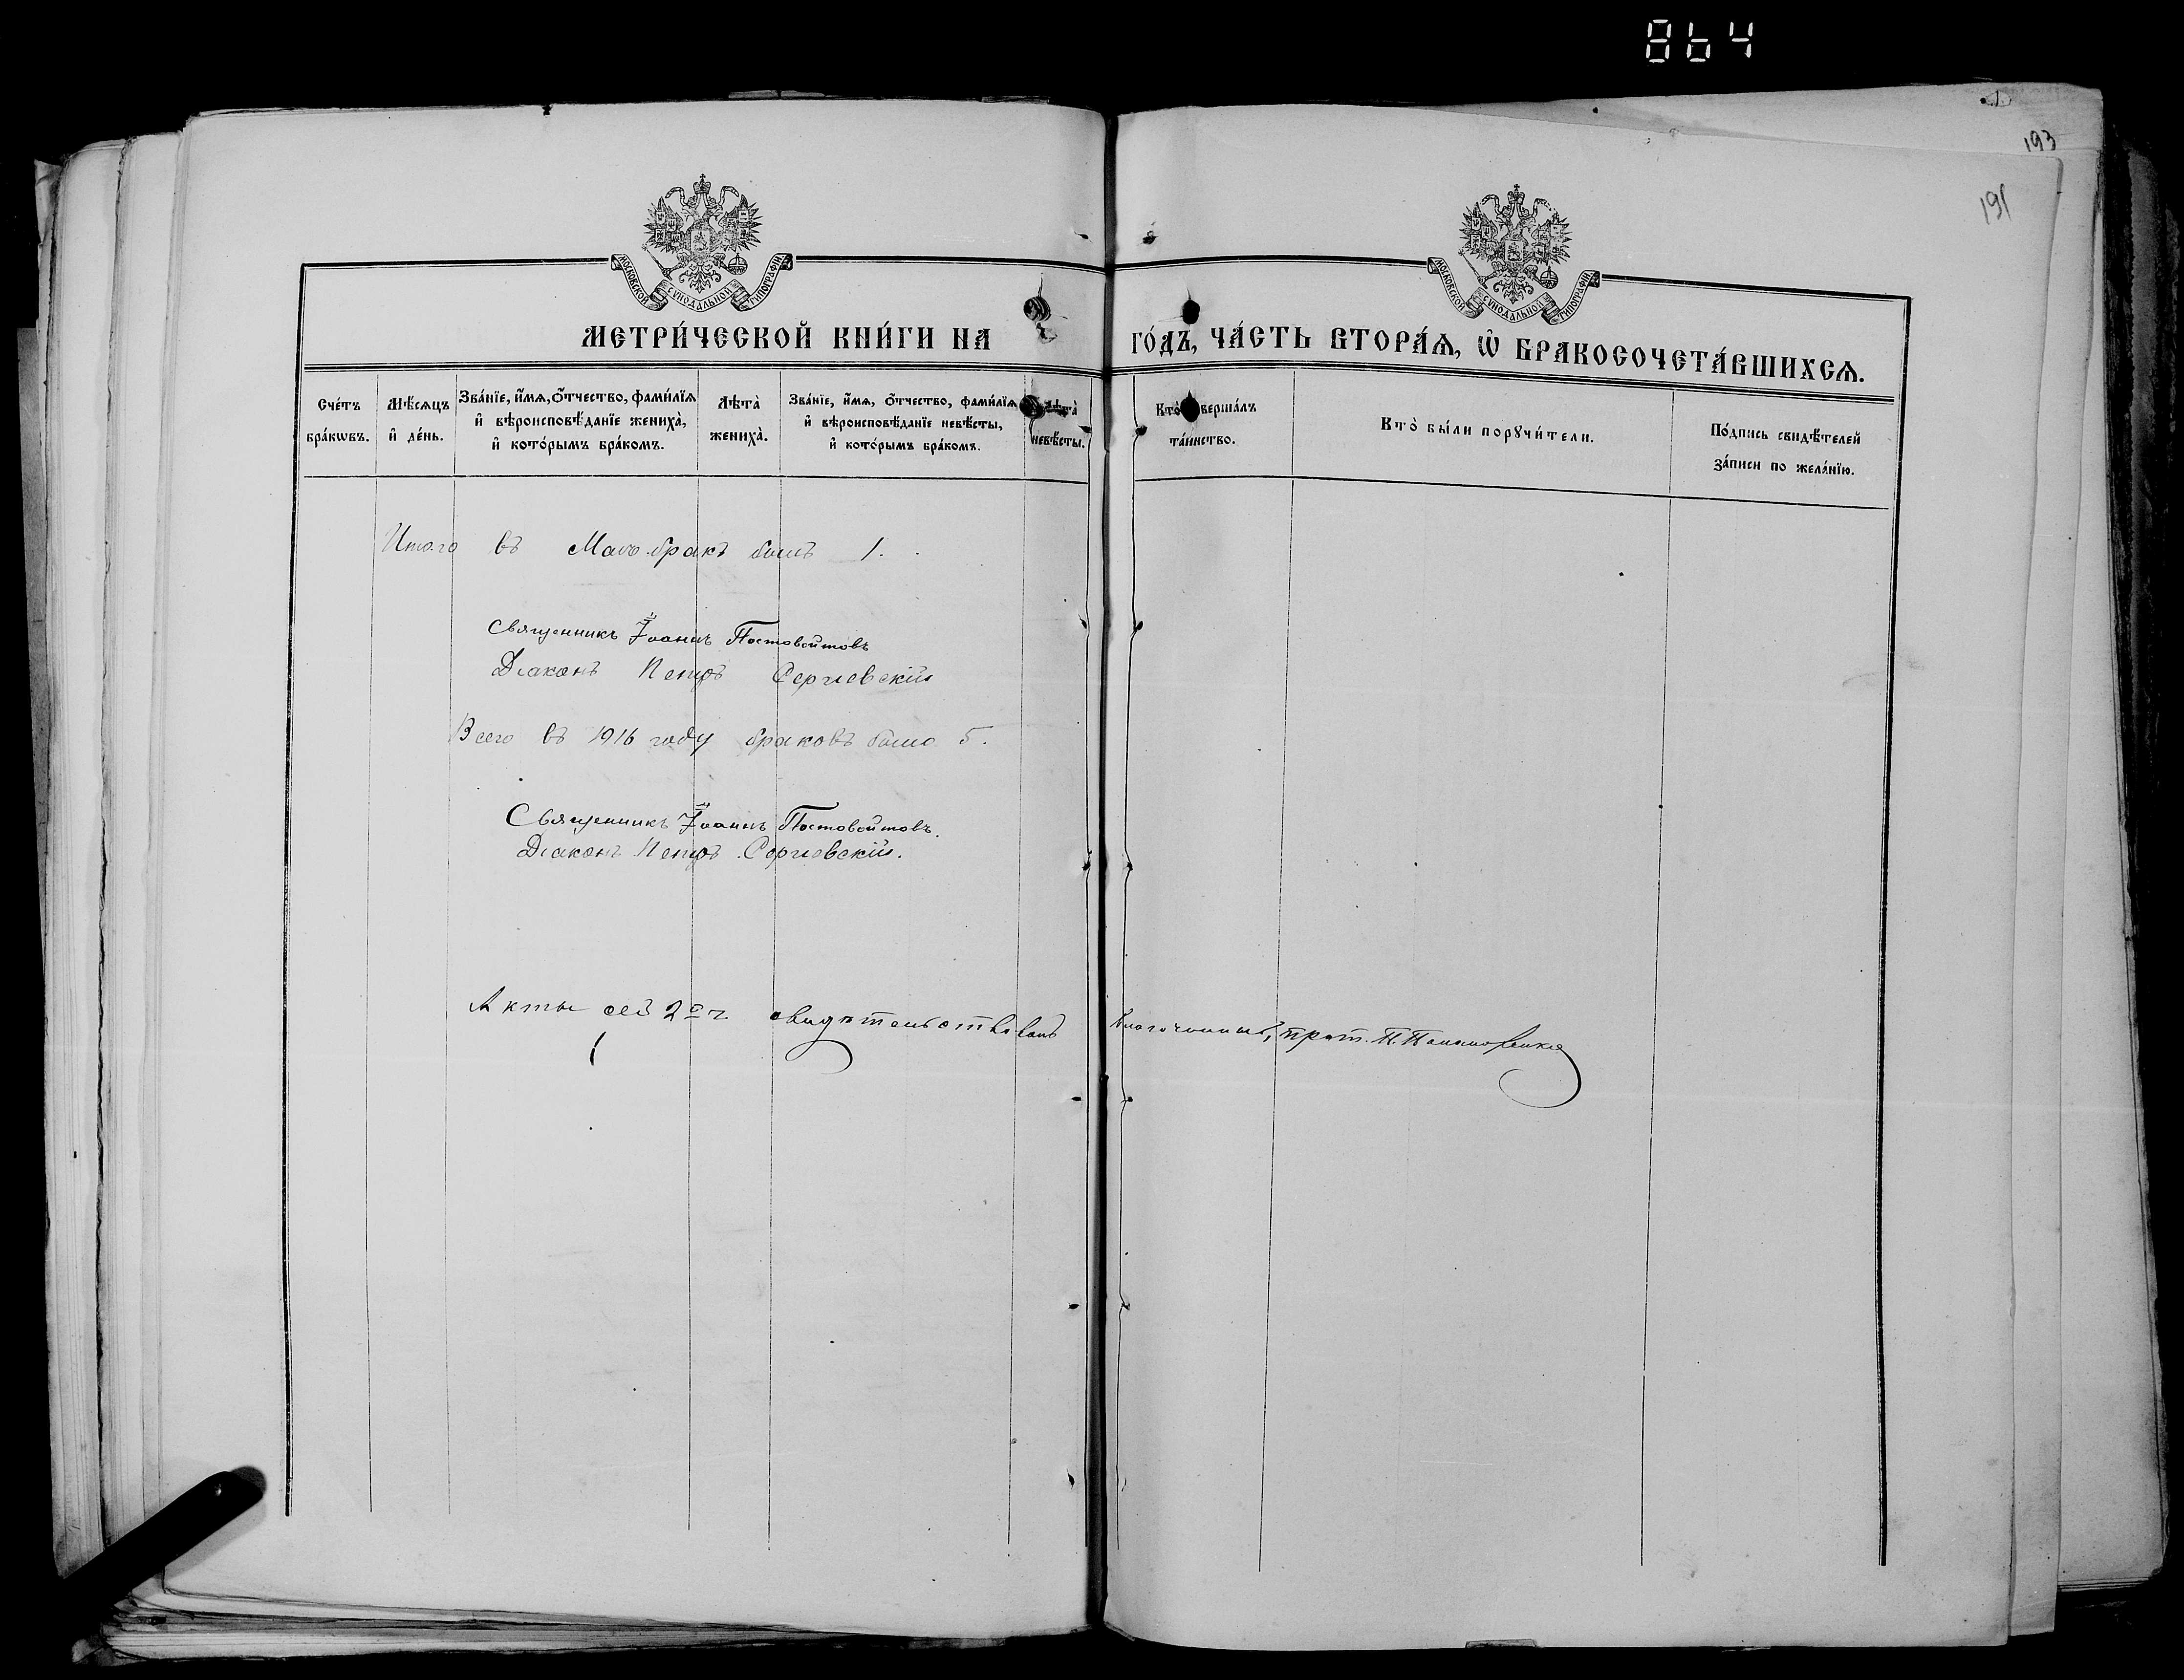 864
193
191
МОСКОВСКОЙ СѴНОДАЛЬНОЙ ТИПОГРАФІИ
МОСКОВСКОЙ СѴНОДАЛЬНОЙ ТИПОГРАФІИ
МЕТРИ́ЧЕСКОЙ КНИ́ГИ НА ГО́ДЪ, ЧА́СТЬ ВТОРА́Я, Ѽ БРАКОСОЧЕТА́ВШИХСЯ.
Сче́тъ бра́кωвъ.
Мѣ́сяцъ и҆ де́нь.
Зва́нїе, и҆́мя, ѻ҆́тчество, фами́лїя и҆ вѣроисповѣ́данїе жениха̀, и҆ кото́рымъ бра́комъ.
Лѣта̀ жениха̀.
Зва́нїе, и҆́мя, ѻ҆́тчество, фами́лїя и҆ вѣроисповѣ́данїе невѣ́сты, и҆ кото́рымъ бра́комъ.
Лѣта̀ невѣ́сты.
Кто̀ вершалъ та́инство.
Кто̀ бы́ли порꙋчи́тели.
По́дпись свидѣ́телей за́писи по жела́нїю.
Итого въ бракъ былъ 1.
Священникъ Іоаннъ Постовойтовъ
Діаконъ Петръ Сергіевскій
Всего въ 1916 году браковъ было 5.
Священникъ Іоаннъ Постовойтовъ.
Діаконъ Петръ Сергіевскій.
Акты сей 2й ч. свидѣтельствовалъ Благочинный, прот. П.